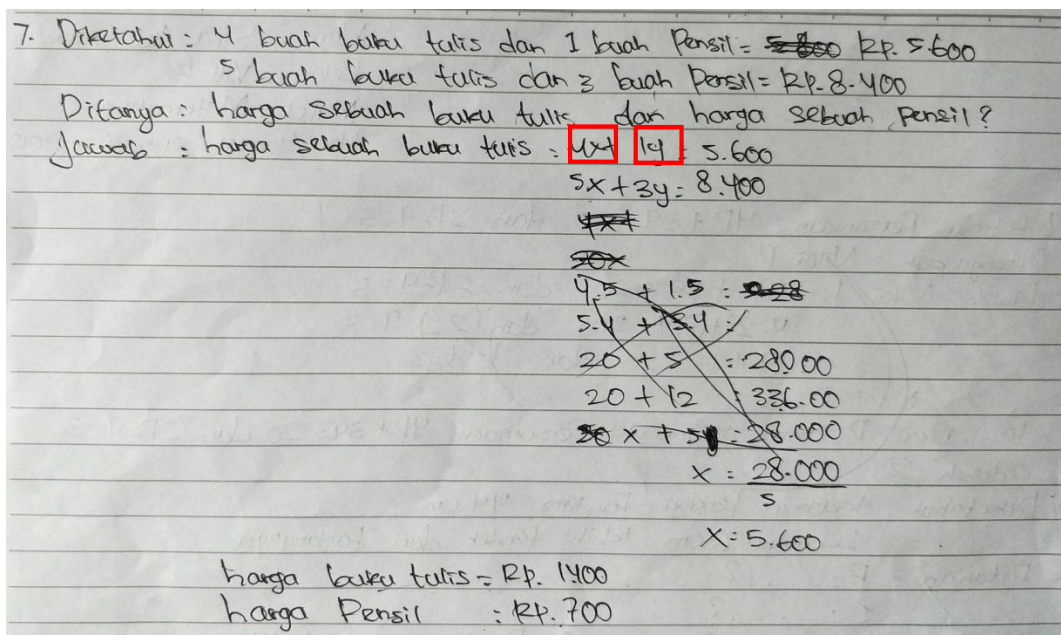 7. Diketahui: 4 buah buku tulis dan 1 buah Pensil = Rp. 5.600
5 buah buku tulis dan 3 buah Pensil = Rp. 8.400
Ditanya: harga sebuah buku tulis dan harga sebuah pensil?
Jawab : harga sebuah buku tulis = 4x+ 1y = 5.600
5x + 3y = 8.400
4x +
20x
4.5 + 1.5 =
5.4 + 3.4 =
20 + 5 = 28000
20 + 12 = 336.00
x + 5y = 28.000
x = 28.000
5
x = 5.600
harga buku tulis = Rp. 1400
harga Pensil : Rp. 700